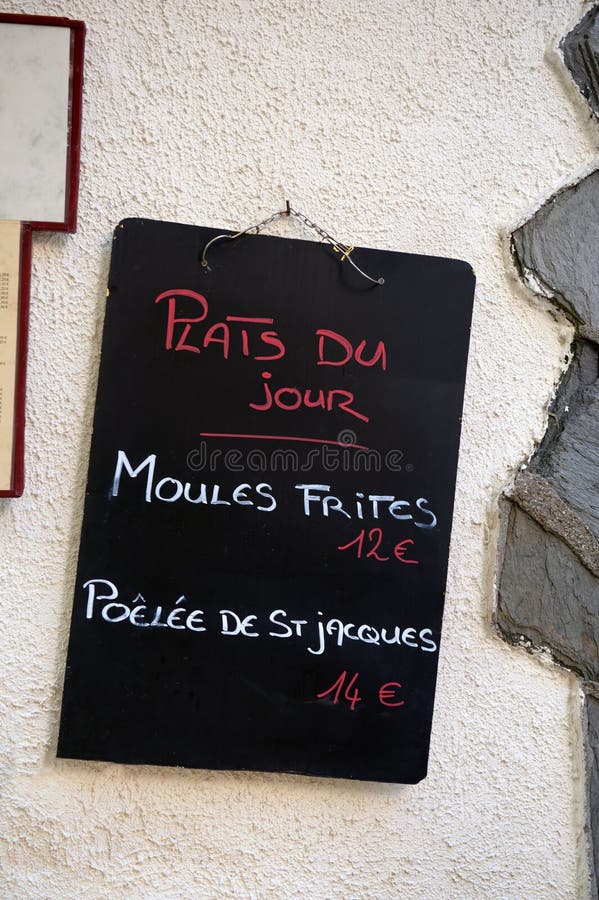 PLATS DU
JOUR
MOULES FRITES
12 €
POÊLÉE DE ST JACQUES
14 €
dreamstime